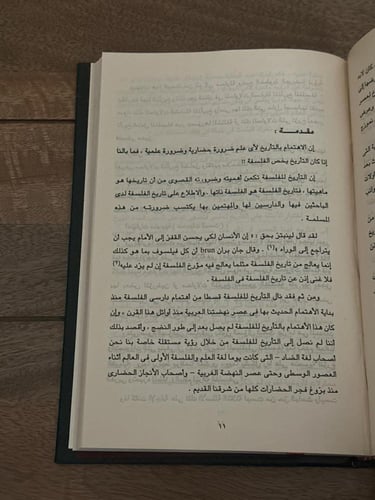 مقدمـــة :
إن الاهتمام بالتأريخ لأى علم ضرورة حضارية وضرورة علمية ، فما بالنا
إذا كان التأريخ يخص الفلسفة !!
إن التأريخ للفلسفة تكمن أهميته وضرورته القصوى من أن تاريخها هو
ماهيتها ، فتاريخ الفلسفة هو الفلسفة ذاتها . والاطلاع على تاريخ الفلسفة لدى
الباحثين فيها والدارسين لها والمهتمين بها يكتسب ضرورته من هذه
المسلمة .
لقد قال لينبتز بحق : «إن الإنسان لكى يحسن القفز إلى الأمام يجب أن
يتراجع إلى الوراء» (١) . وقال جان بران brun أن كل فيلسوف بما هو كذلك
إنما يعالج من تاريخ الفلسفة مثلما يعالج فيه مؤرخ الفلسفة إن لم يزد عليه(٢)
فلا غنى إذن عن تاريخ الفلسفة فى الفلسفة .
ومن ثم فقد نال التأريخ للفلسفة قسطا من اهتمام دارسى الفلسفة منذ
بداية الاهتمام الحديث بها فى عصر نهضتنا العربية منذ أوائل هذا القرن ، وإن
كان هذا الاهتمام بالتأريخ للفلسفة لم يصل بعد إلى طور النضج ، وأقصد بذلك
أننا لم نصل إلى التأريخ للفلسفة من خلال رؤية مستقلة خاصة بنا نحن
أصحاب لغة الضاد – التى كانت يوما لغة العلم والفلسفة الأولى فى العالم أثناء
العصور الوسطى وحتى عصر النهضة الغربية – وأصحاب الأنجاز الحضارى
منذ بزوغ فجر الحضارات كلها من شرقنا القديم .
١١